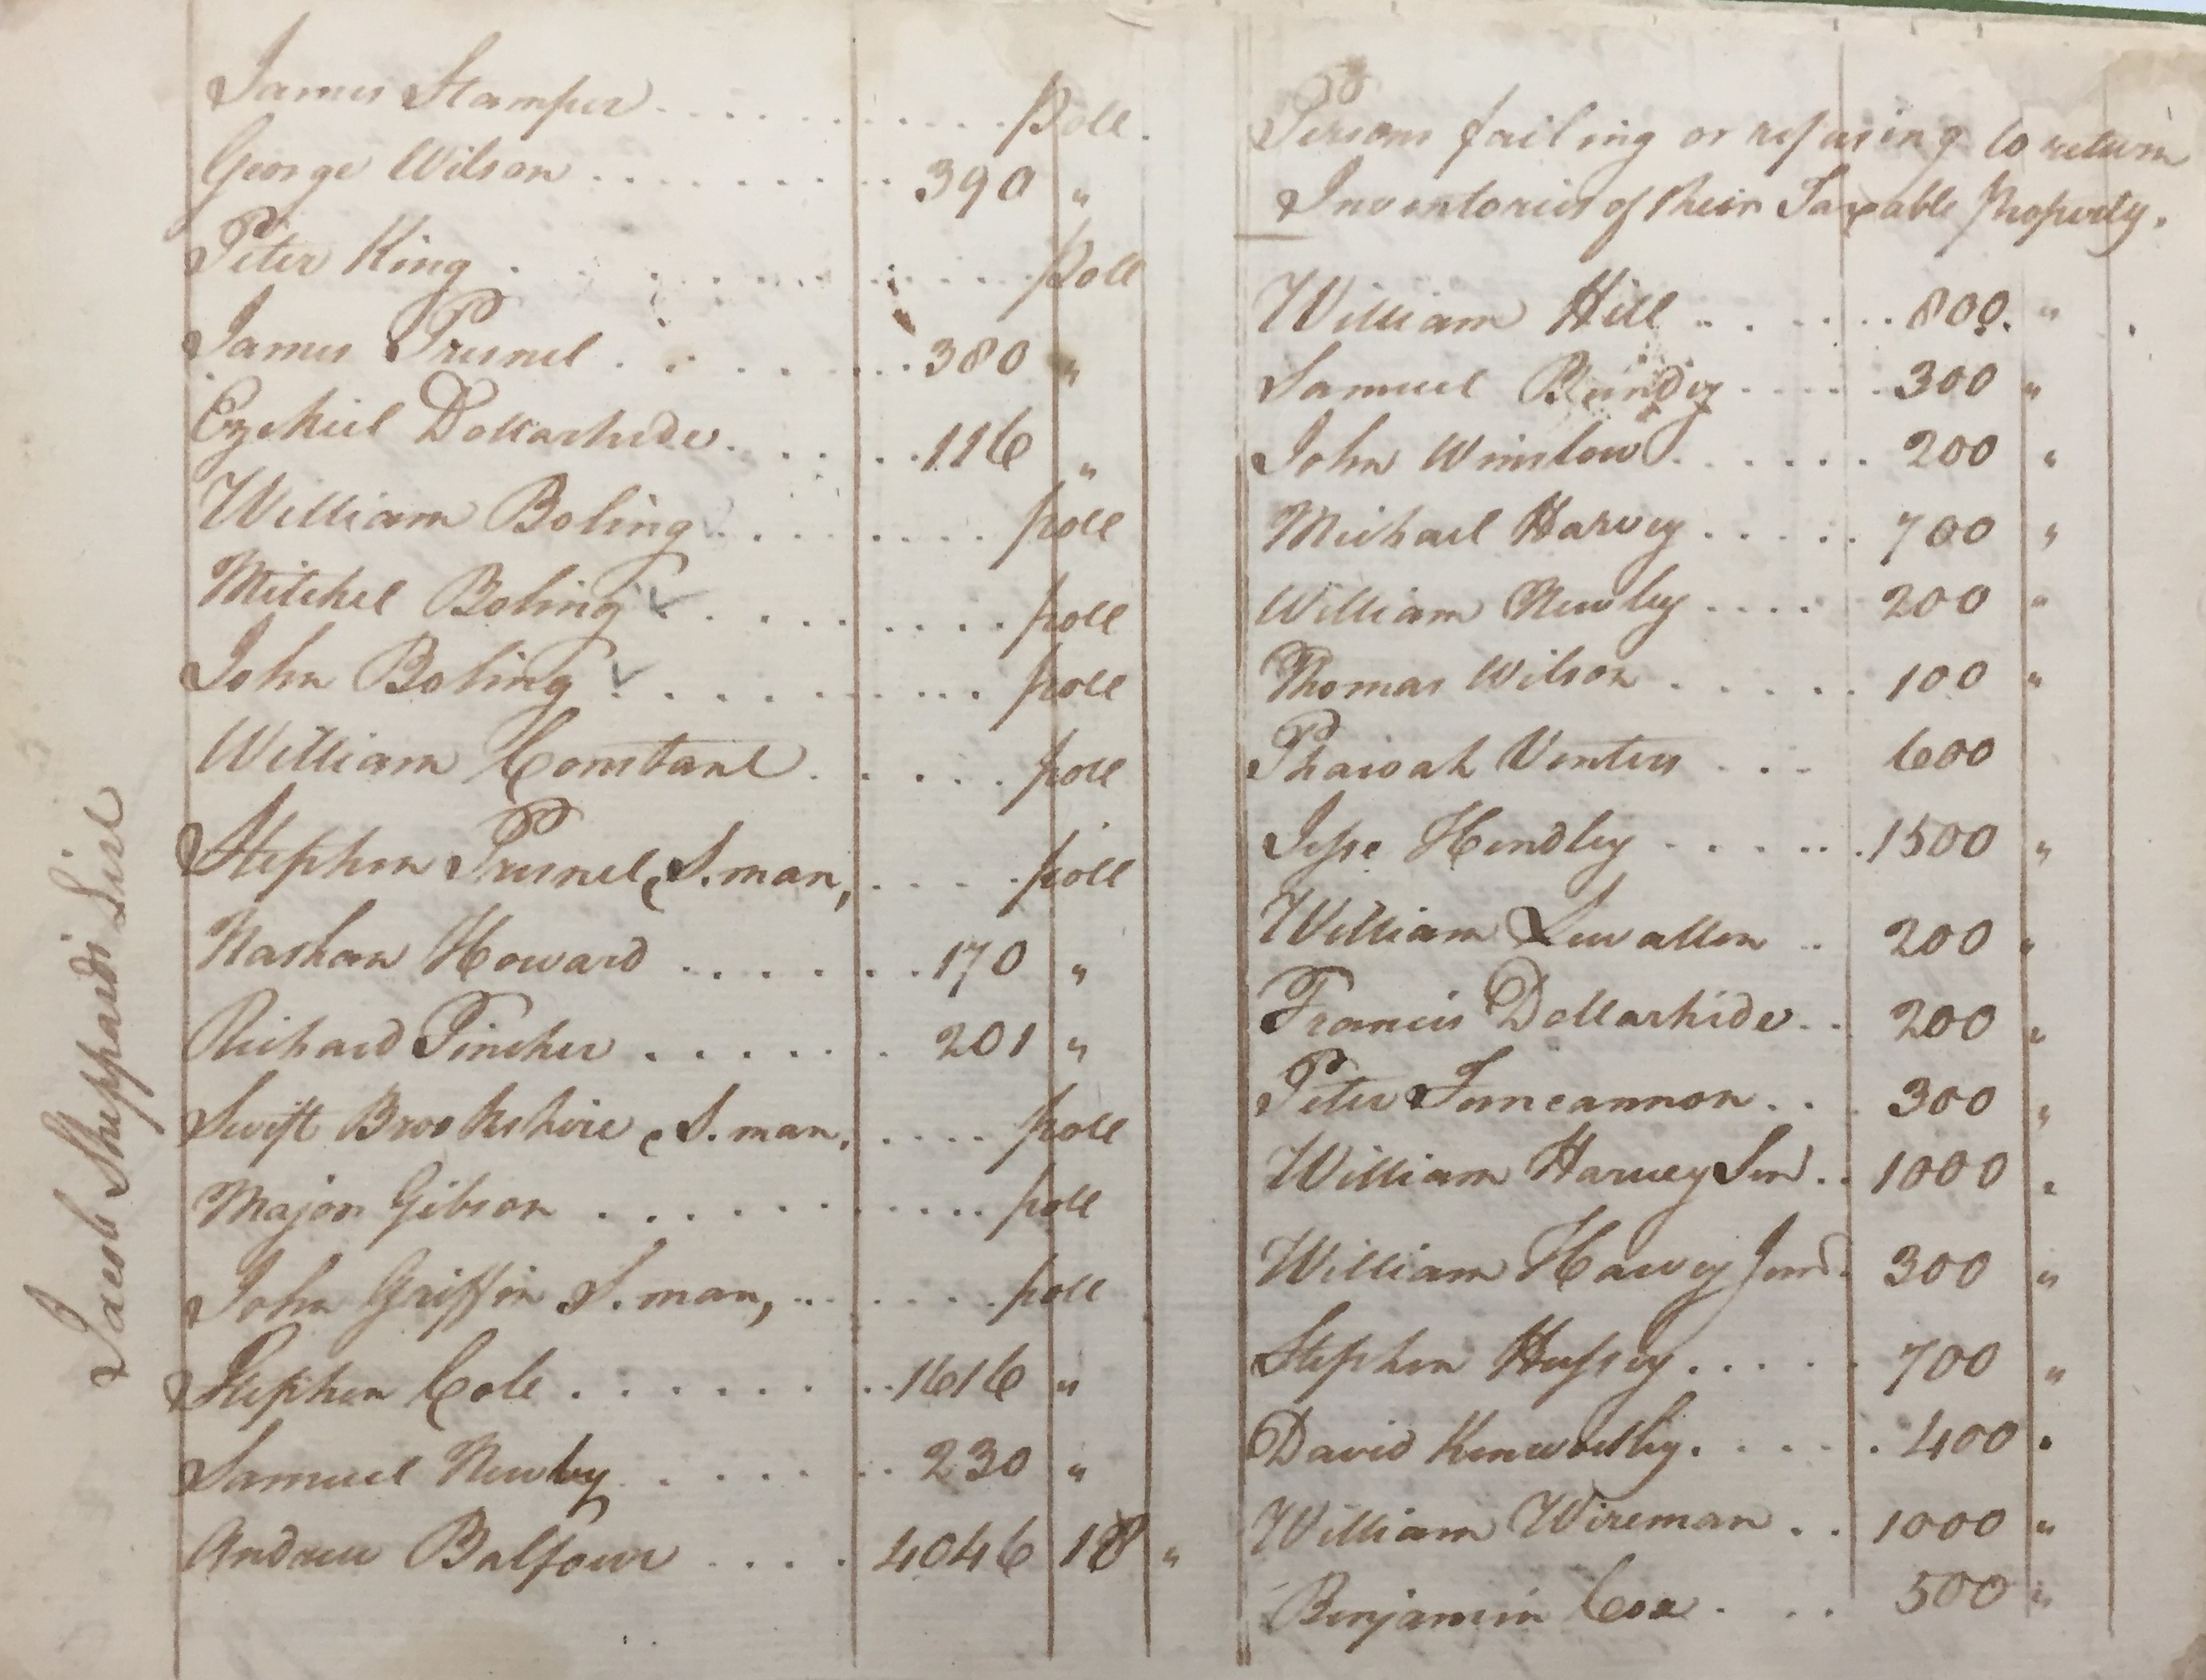 Jacob Sheppards List
James Stamper . . . . . . . . . . poll.
George Wilson . . . . . . . . . 390 "
Peter King . . . . . . . . . . poll
James Presnel . . . . . . . . 380 "
Ezekiel Dollarhide . . . . . . 116 "
William Boling . . . . . . . . poll
Mitchel Boling ✓ . . . . . . . . poll
John Boling ✓ . . . . . . . . . poll
William Constant . . . . . . poll
Stephen Presnel, S. man, . . . . poll
Nathan Howard . . . . . . . 170 "
Richard Pincher . . . . . . 201 "
Swift Brookshire, S. man, . . . . poll
Major Gibson . . . . . . . . . . poll
John Griffin S. man, . . . . . . poll
Stephen Cole . . . . . . . . 1616 "
Samuel Newby . . . . . . 230 "
Andrew Balfour . . . . 4046 18 "
Persons failing or refusing to return
Inventories of their Taxable Property.
William Hill . . . . . . 800. "
Samuel Bundy . . . . . 300 "
John Winslow . . . . . . 200 "
Michael Harvey . . . . . 700 "
William Newby . . . . 200 "
Thomas Wilson . . . . . 100 "
Pharoah Venters . . . 600
Jesse Hendley . . . . . . 1500 "
William Lewallen . . 200 "
Francis Dollarhide . . 200 "
Peter Funcannon . . . 300 "
William Harvey Senr. . 1000 "
William Harvey Junr. 300 "
Stephen Hussey . . . . . 700 "
David Kenworthy . . . . . 400 "
William Wireman . . 1000 "
Benjamin Cox . . . 500 "